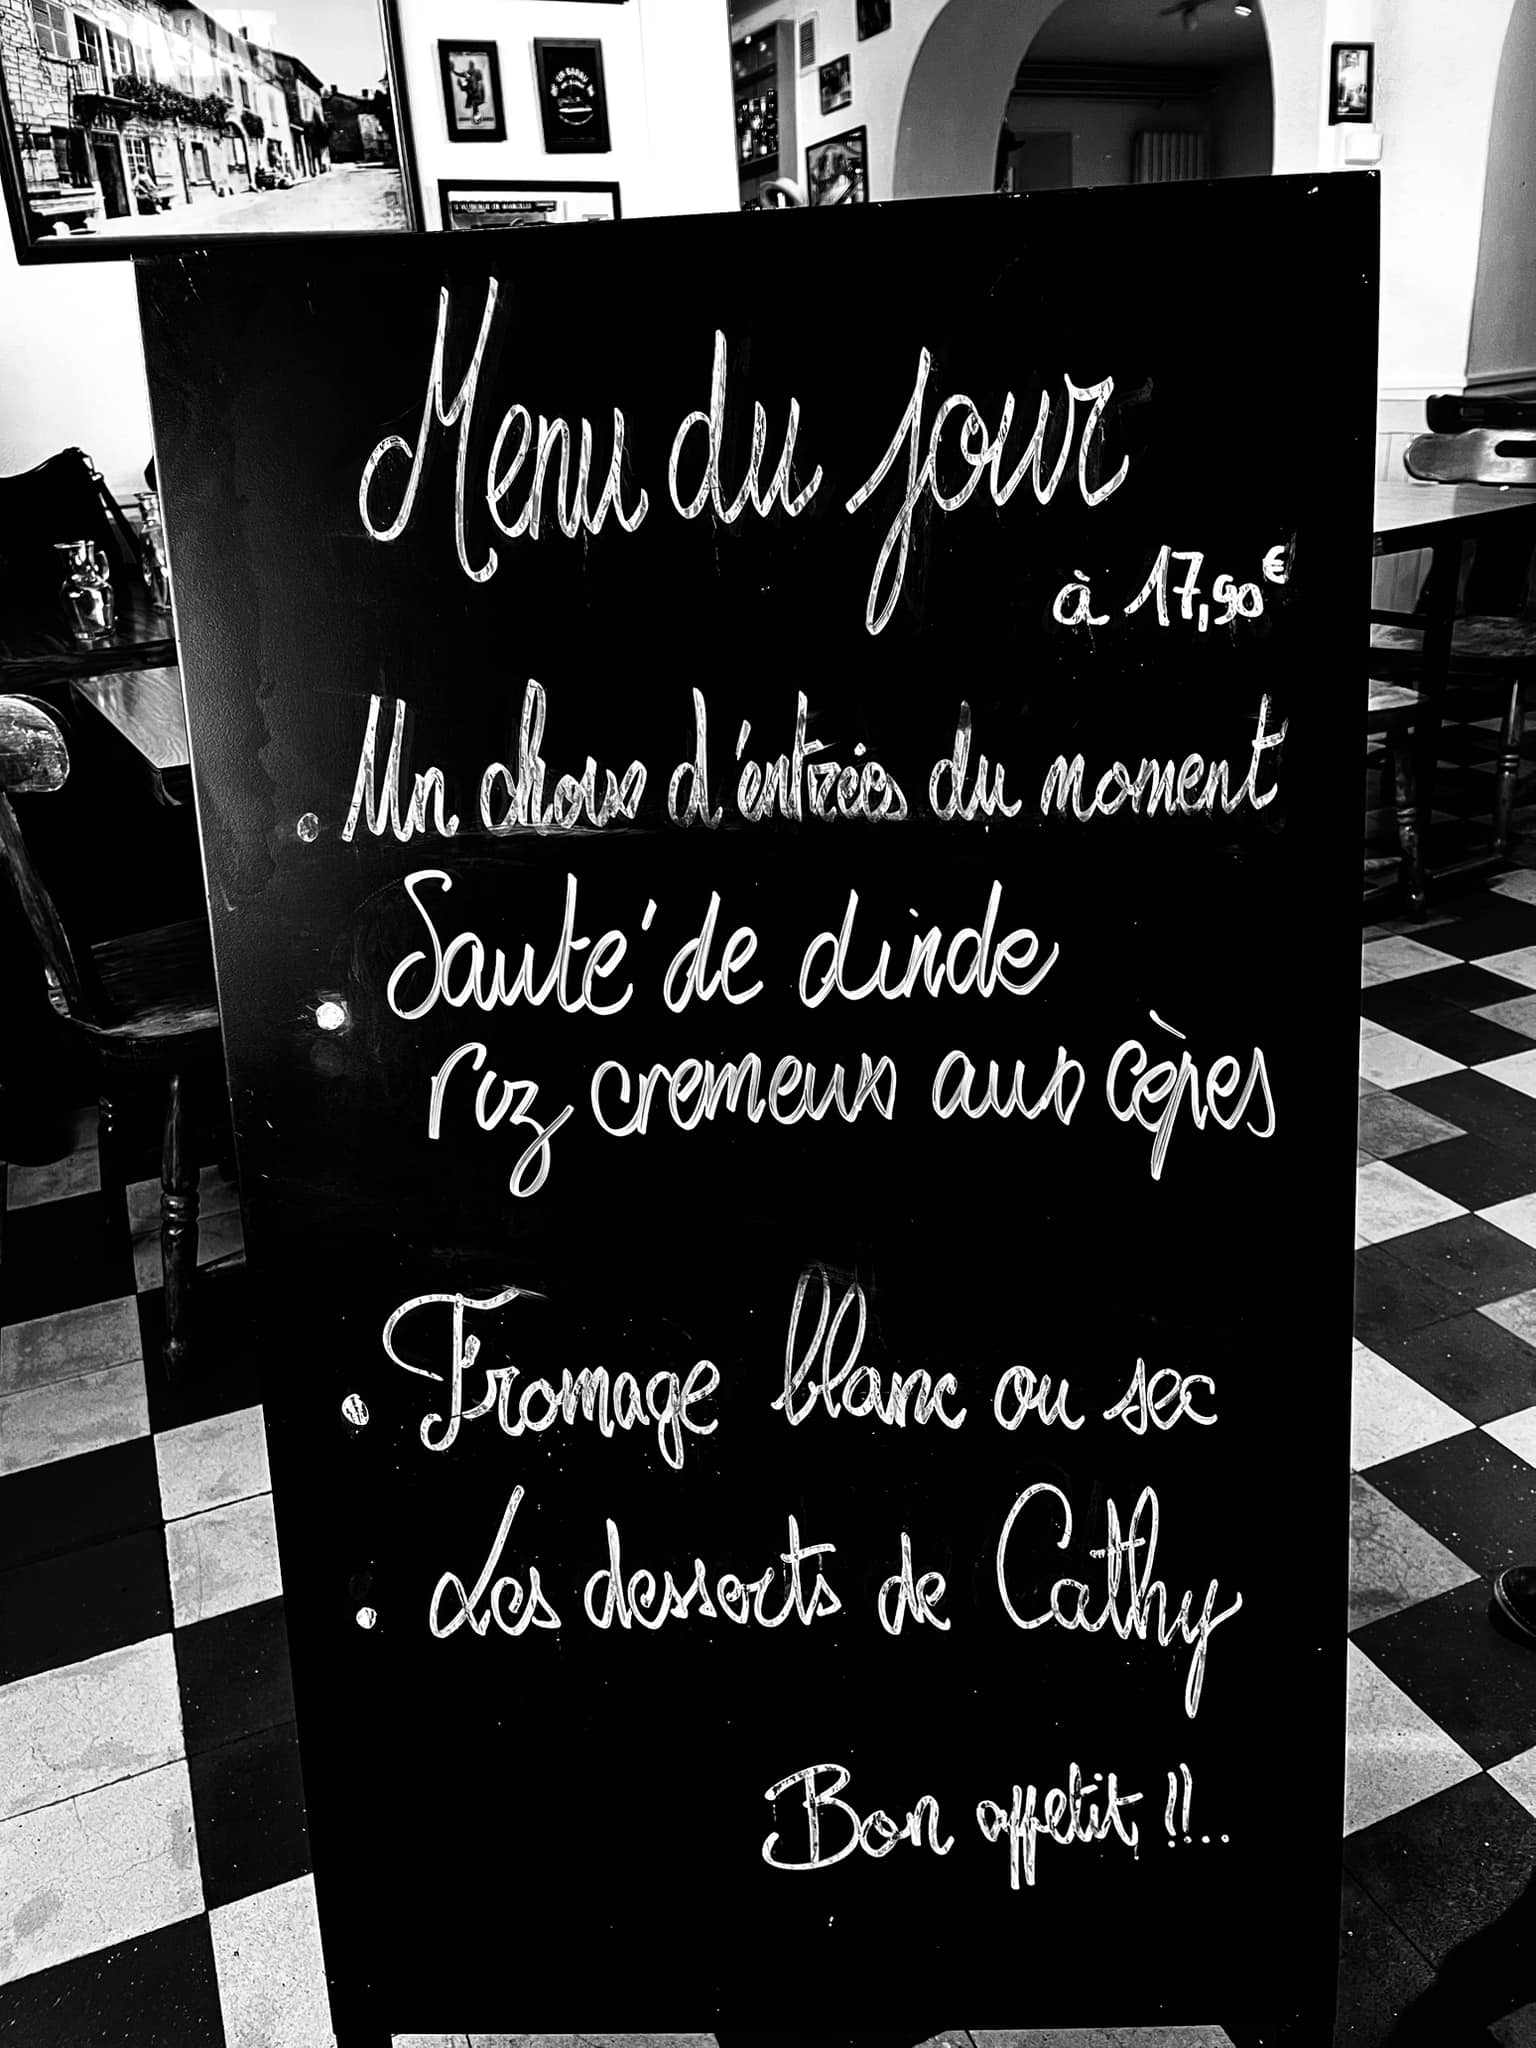 Menu du jour
à 17,90€
• Un choix d'entrées du moment
• Sauté de dinde
riz cremeux aux cèpes
• Fromage blanc ou sec
• Les desserts de Cathy
Bon appetit !!..